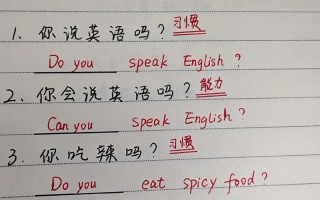 1. 你说英语吗? 习惯
Do you speak English ?
2. 你会说英语吗? 能力
Can you speak English ?
3. 你吃辣吗? 习惯
Do you eat spicy food ?